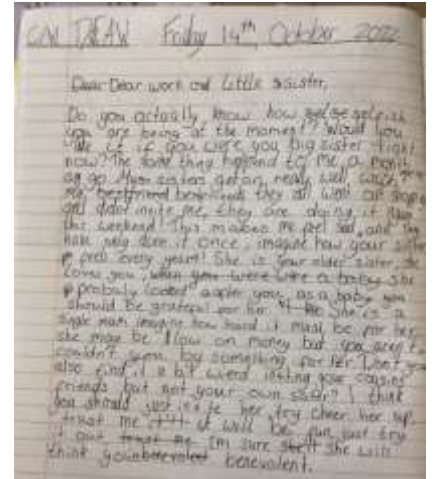 Friday 14th October 2022
Dear Dear work and little sister,
Do you actually know how selfish
you are being at the moment? Would you
like it if you were you big sister right
now? The same thing happend to me a month
ago my sisters get on really well with
my they all went out
and didnt invite me, they are doing it again
this weekend! This makes me feel sad, and they
have only done it once, imagine how your sister
feels every year! She is your older sister, she
loves you, when you were were a baby she
probaly looked after you, as a baby you
should be grateful for her. She is a
single mom imagine how hard it must be for her
she may be low on money but you aren't
couldn't you by something for her. Don't you
else find it a bit weird inviting your cousins
friends but not your own sister? I think
you should just invite her, try cheer her up
trust me it will be fun just try
it out Im sure she will
think you benevolent.